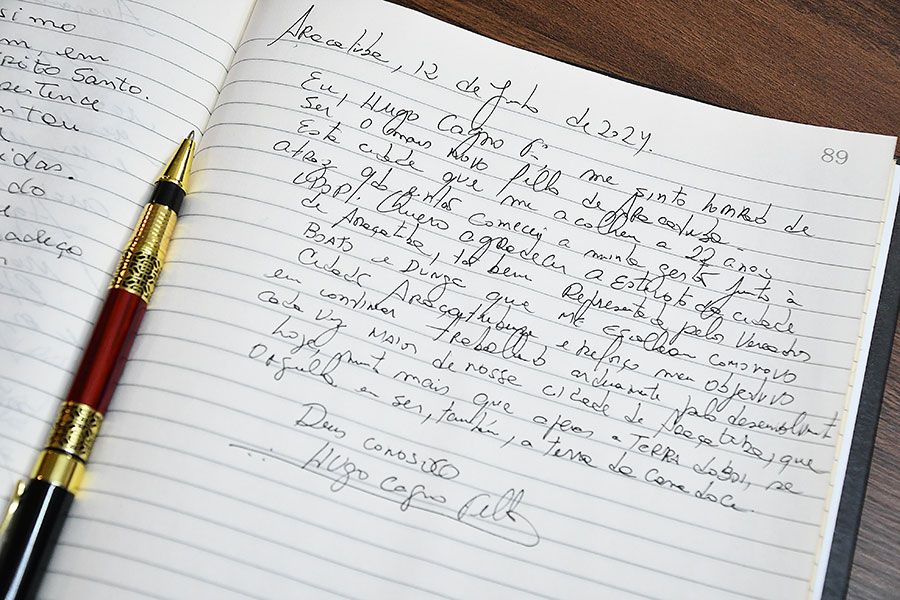 simo
m, em
rito Santo.
pertence
ntou
idas.
do
e
adeço
Araçatuba, 12 de Junho de 2024.
89
Eu, Hugo Cagno Fº, me sinto honrado de
ser o mais novo filho de Araçatuba.
Esta cidade que me acolheu a 22 anos
atraz, qdo
comecei a minha gestão junto à
UDOP. Quero agradecer a
da cidade
de Araçatuba, tão bem representada pelos Vereadores
Boato e Dunga que me escolheram como novo
Cidadão Araçatubense e reforço meu objetivo
em continuar trabalhando arduamente pelo desenvolvimento
cada vez maior de nossa cidade de Araçatuba, que
hoje, muito mais que apenas a Terra do Boi, se
orgulha em ser, também, a terra da Cana doce.
Deus conosco
Hugo Cagno Filho